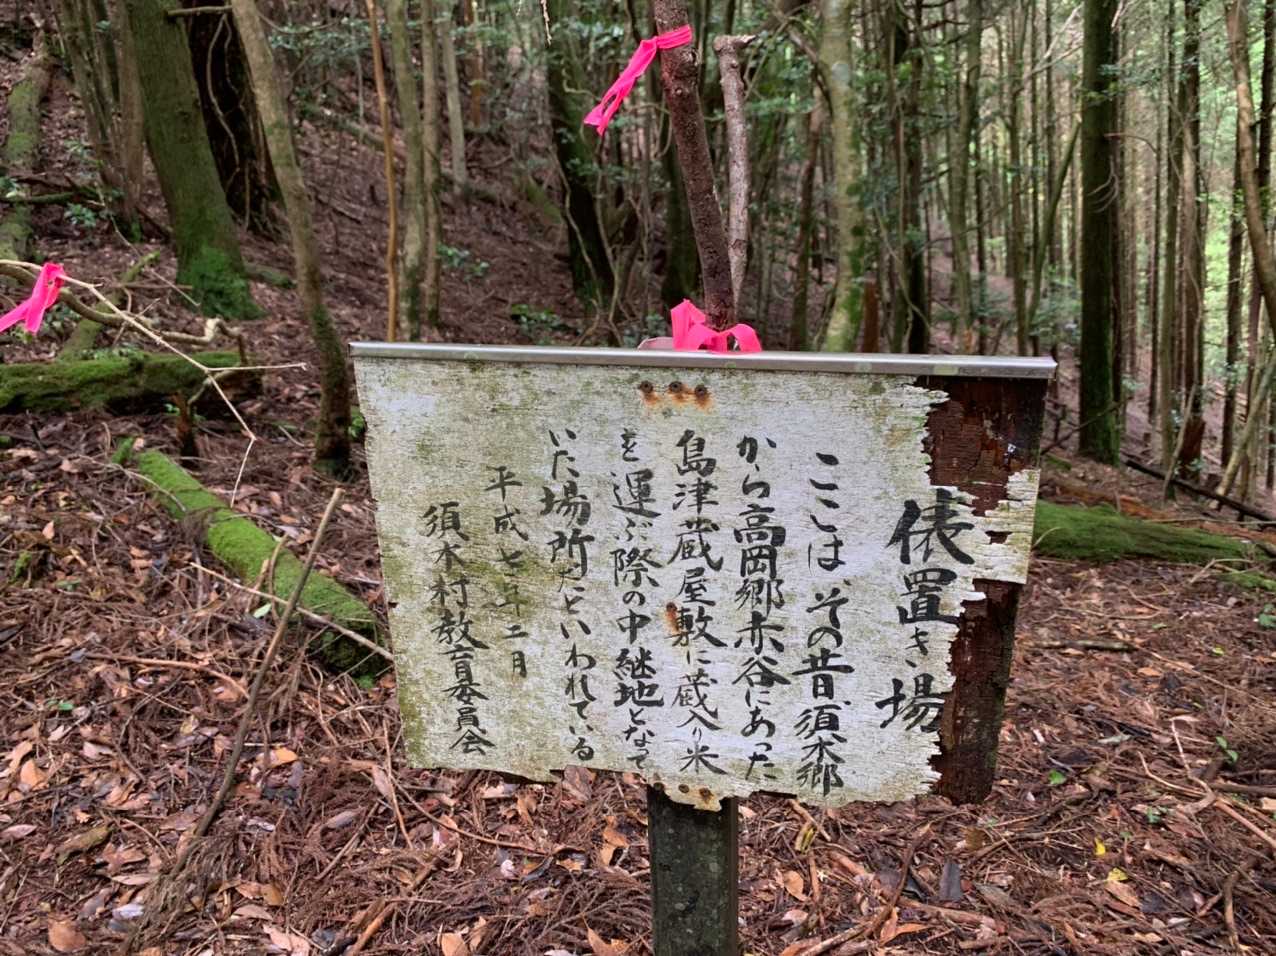 俵置き場
ここは、その昔須木郷
から高岡郷赤谷にあった
島津蔵屋敷に蔵入り米
を運ぶ際の中継地となって
いた場所だといわれている
平成七年二月
須木村教育委員会